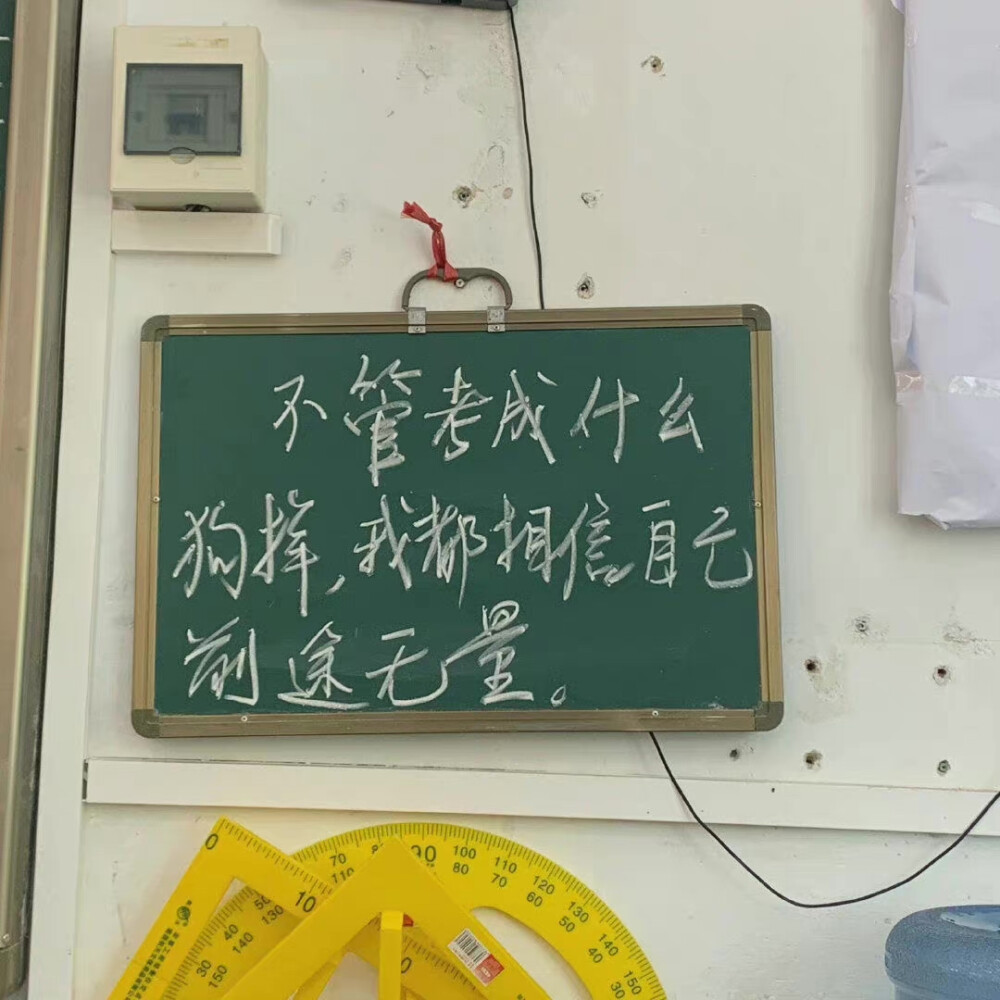 不管考成什么
狗样,我都相信自己
前途无量。
0
10
70
100
110
120
130
140
150
80
70
60
50
40
30
30
40
150
140
130
0